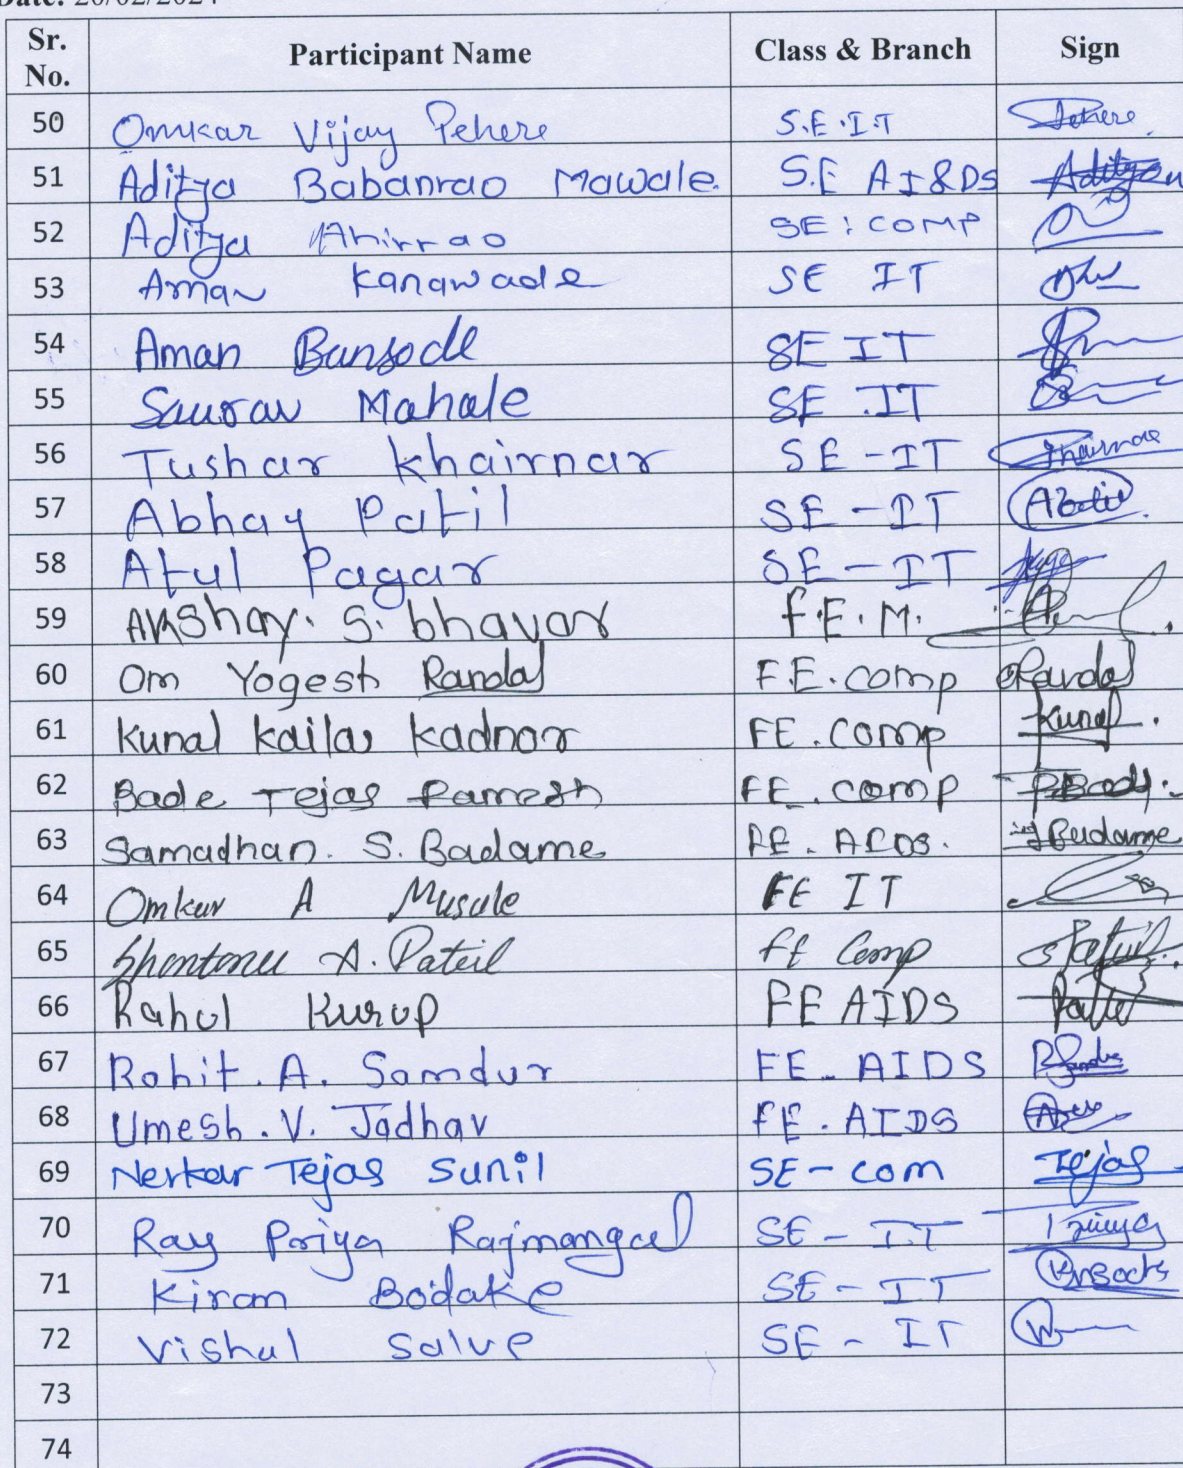 Date: 20/02/2024
Sr. No. Participant Name Class & Branch Sign
50 Omkar Vijay Pehere S.E.I.T Pehere
51 Aditya Babanrao Mawale. S.E AI&DS Aditya
52 Aditya Ahirrao SE: COMP
53 Aman Kanawade SE IT
54 Aman Bansode SE IT
55 Saurav Mahale SE .IT
56 Tushar Khairnar SE-IT
57 Abhay Patil SE-IT
58 Atul Pagar SE-IT
59 Akshay. S. bhavar F.E.M.
60 Om Yogesh Randal F.E.comp Randal
61 Kunal kailas kadnor FE.comp Kunal.
62 Bade Tejas Ramesh FE.comp
63 Samadhan. S. Badame FE. AIDS. Badame
64 Omkar A Musale FE IT
65 Shantanu A. Patil FE Comp
66 Rahul Kurup FE AIDS
67 Rohit. A. Samdur FE- AIDS
68 Umesh. V. Jadhav FE. AIDS
69 Nerkar Tejas Sunil SE-com Tejas
70 Ray Priya Rajmangal SE-IT Priya
71 Kiran Bodake SE-IT
72 Vishal Salve SE-IT
73
74